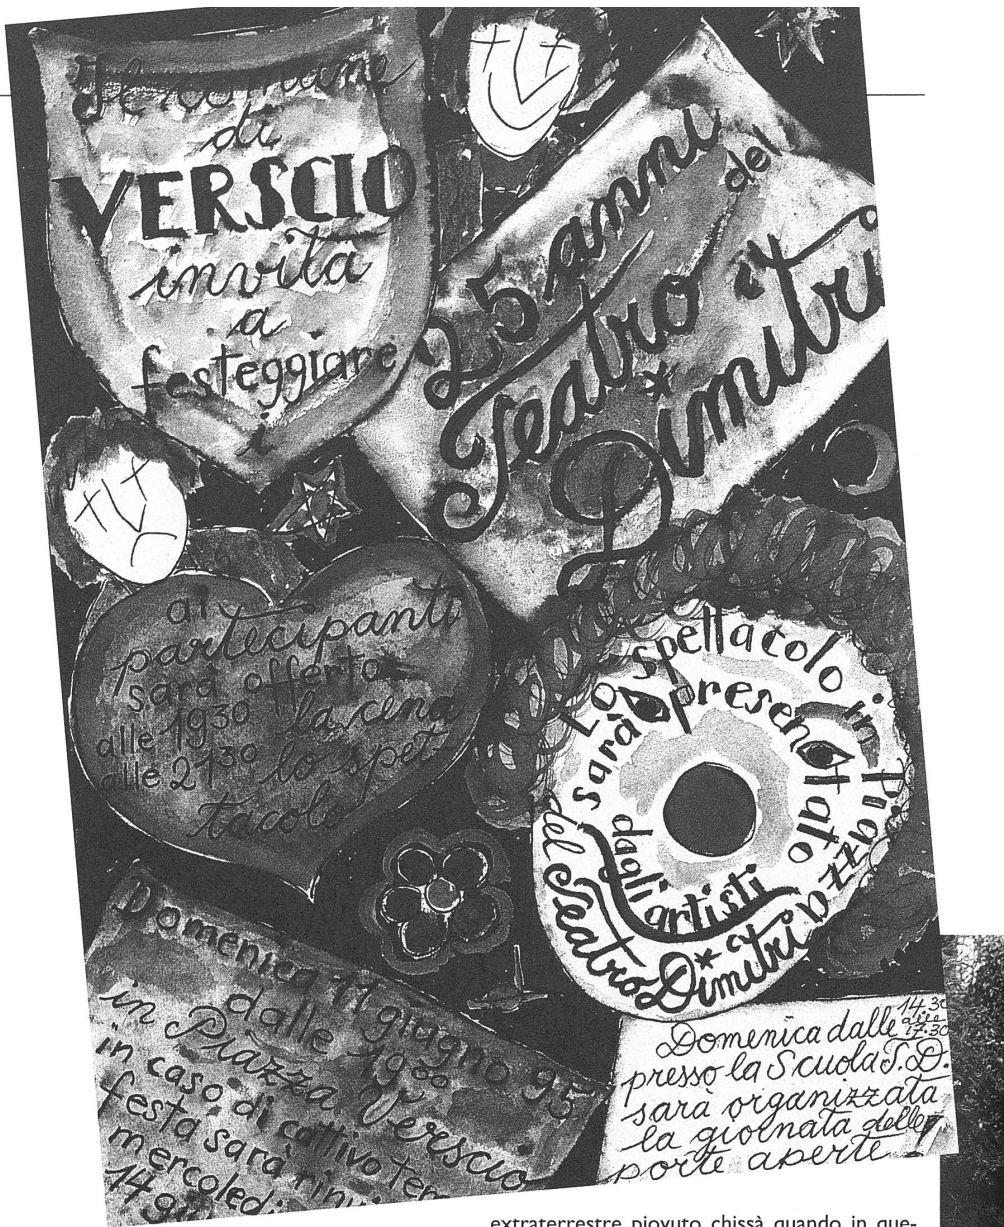 Il comune
di
VERSCIO
invita
a
festeggiare
i
25 anni del
Teatro
Dimitri
ai
partecipanti
sarà offerto
alle 19³⁰ la cena
alle 21³⁰ lo spet
tacolo
Lo spettacolo in Piazza
sarà presentato
dagli artisti
del Teatro Dimitri
Domenica 11 giugno 95
dalle 19⁰⁰
in Piazza Verscio
in caso di cattivo tem
festa sarà rinvi
mercoledì
14 gi
Domenica dalle 14.30
alle 17.30
presso la Scuola T.D.
sarà organizzata
la giornata delle
porte aperte
extraterrestre piovuto chissà quando in que-